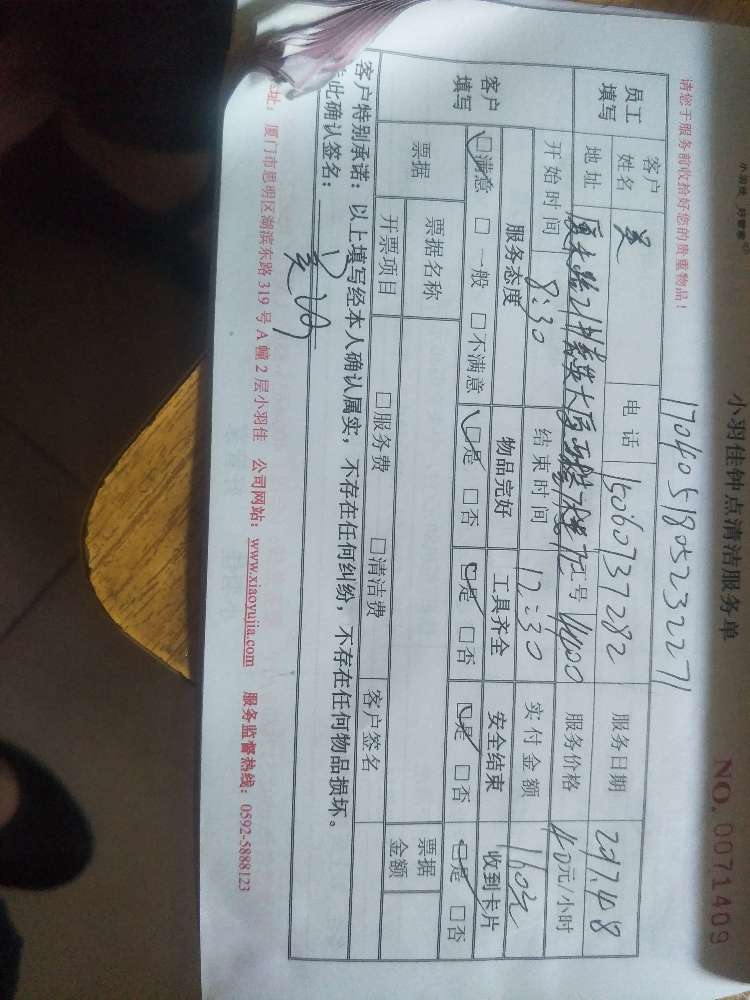 小羽佳 好管家
小羽佳钟点清洁服务单
NO. 0071409
请您于服务前收拾好您的贵重物品!
1704051805232271
员工填写 客户姓名 吴 电话 15060737282 服务日期 2017.4.8
地址 工号 4400 服务价格 40元/小时
开始时间 8:30 结束时间 12:30 实付金额 160元
客户填写 服务态度 物品完好 工具齐全 安全结束 收到卡片
☑满意 □一般 □不满意 ☑是 □否 ☑是 □否 ☑是 □否 ☑是 □否
票据 票据名称 票据金额
开票项目 □服务费 □清洁费 客户签名
客户特别承诺:以上填写经本人确认属实,不存在任何纠纷,不存在任何物品损坏。
此确认签名:
地址:厦门市思明区湖滨东路319号A幢2层小羽佳 公司网站:www.xiaoyujia.com 服务监督热线:0592-5888123